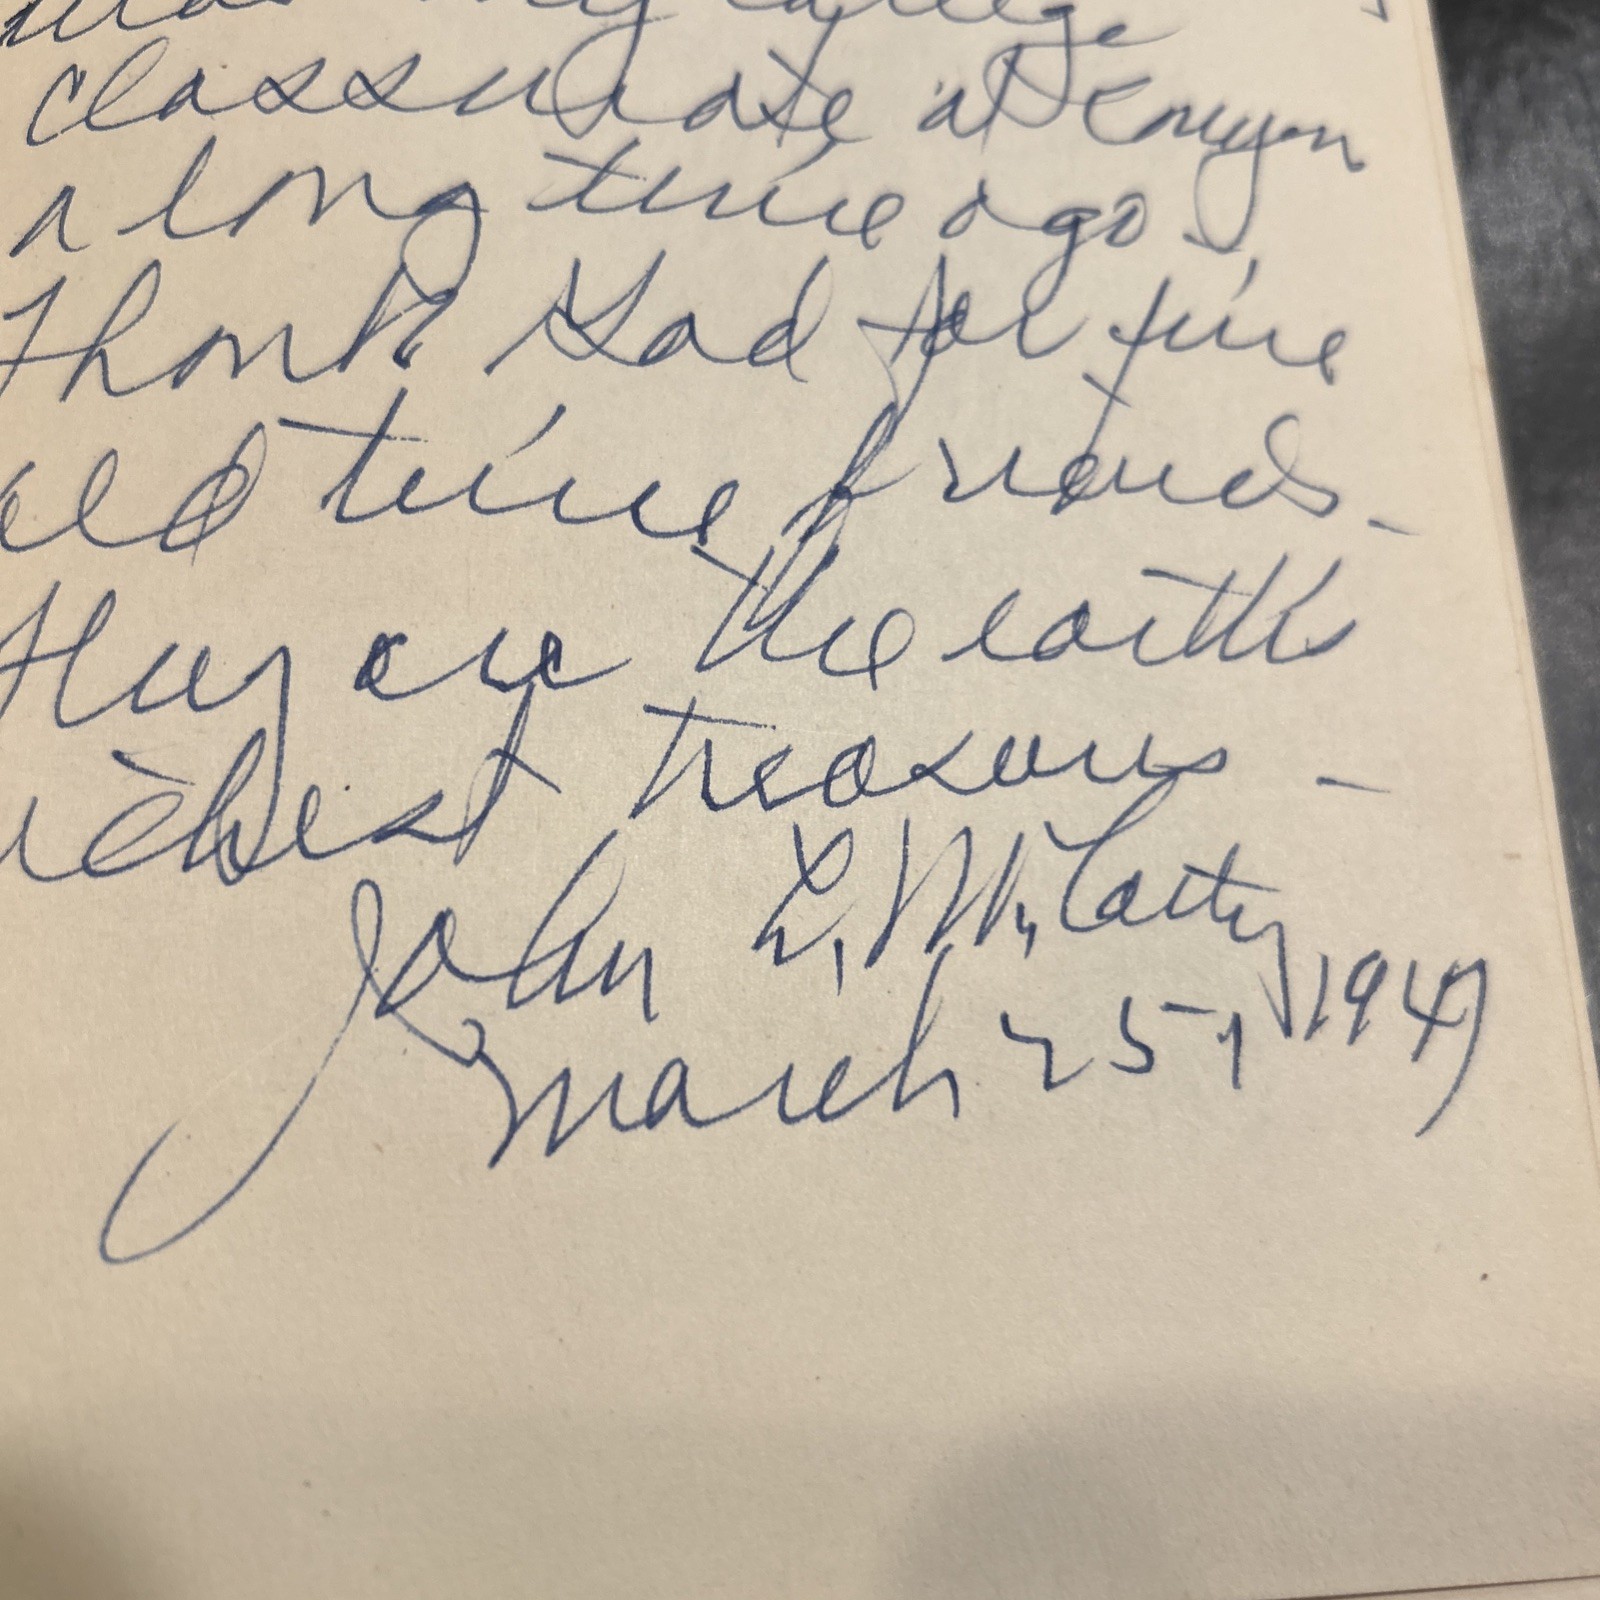 was my college
classmate at Canyon
a long time ago.
Thank God for fine
old time friends -
they are the earth's
richest treasures -
John L. McCarty
March 25, 1947